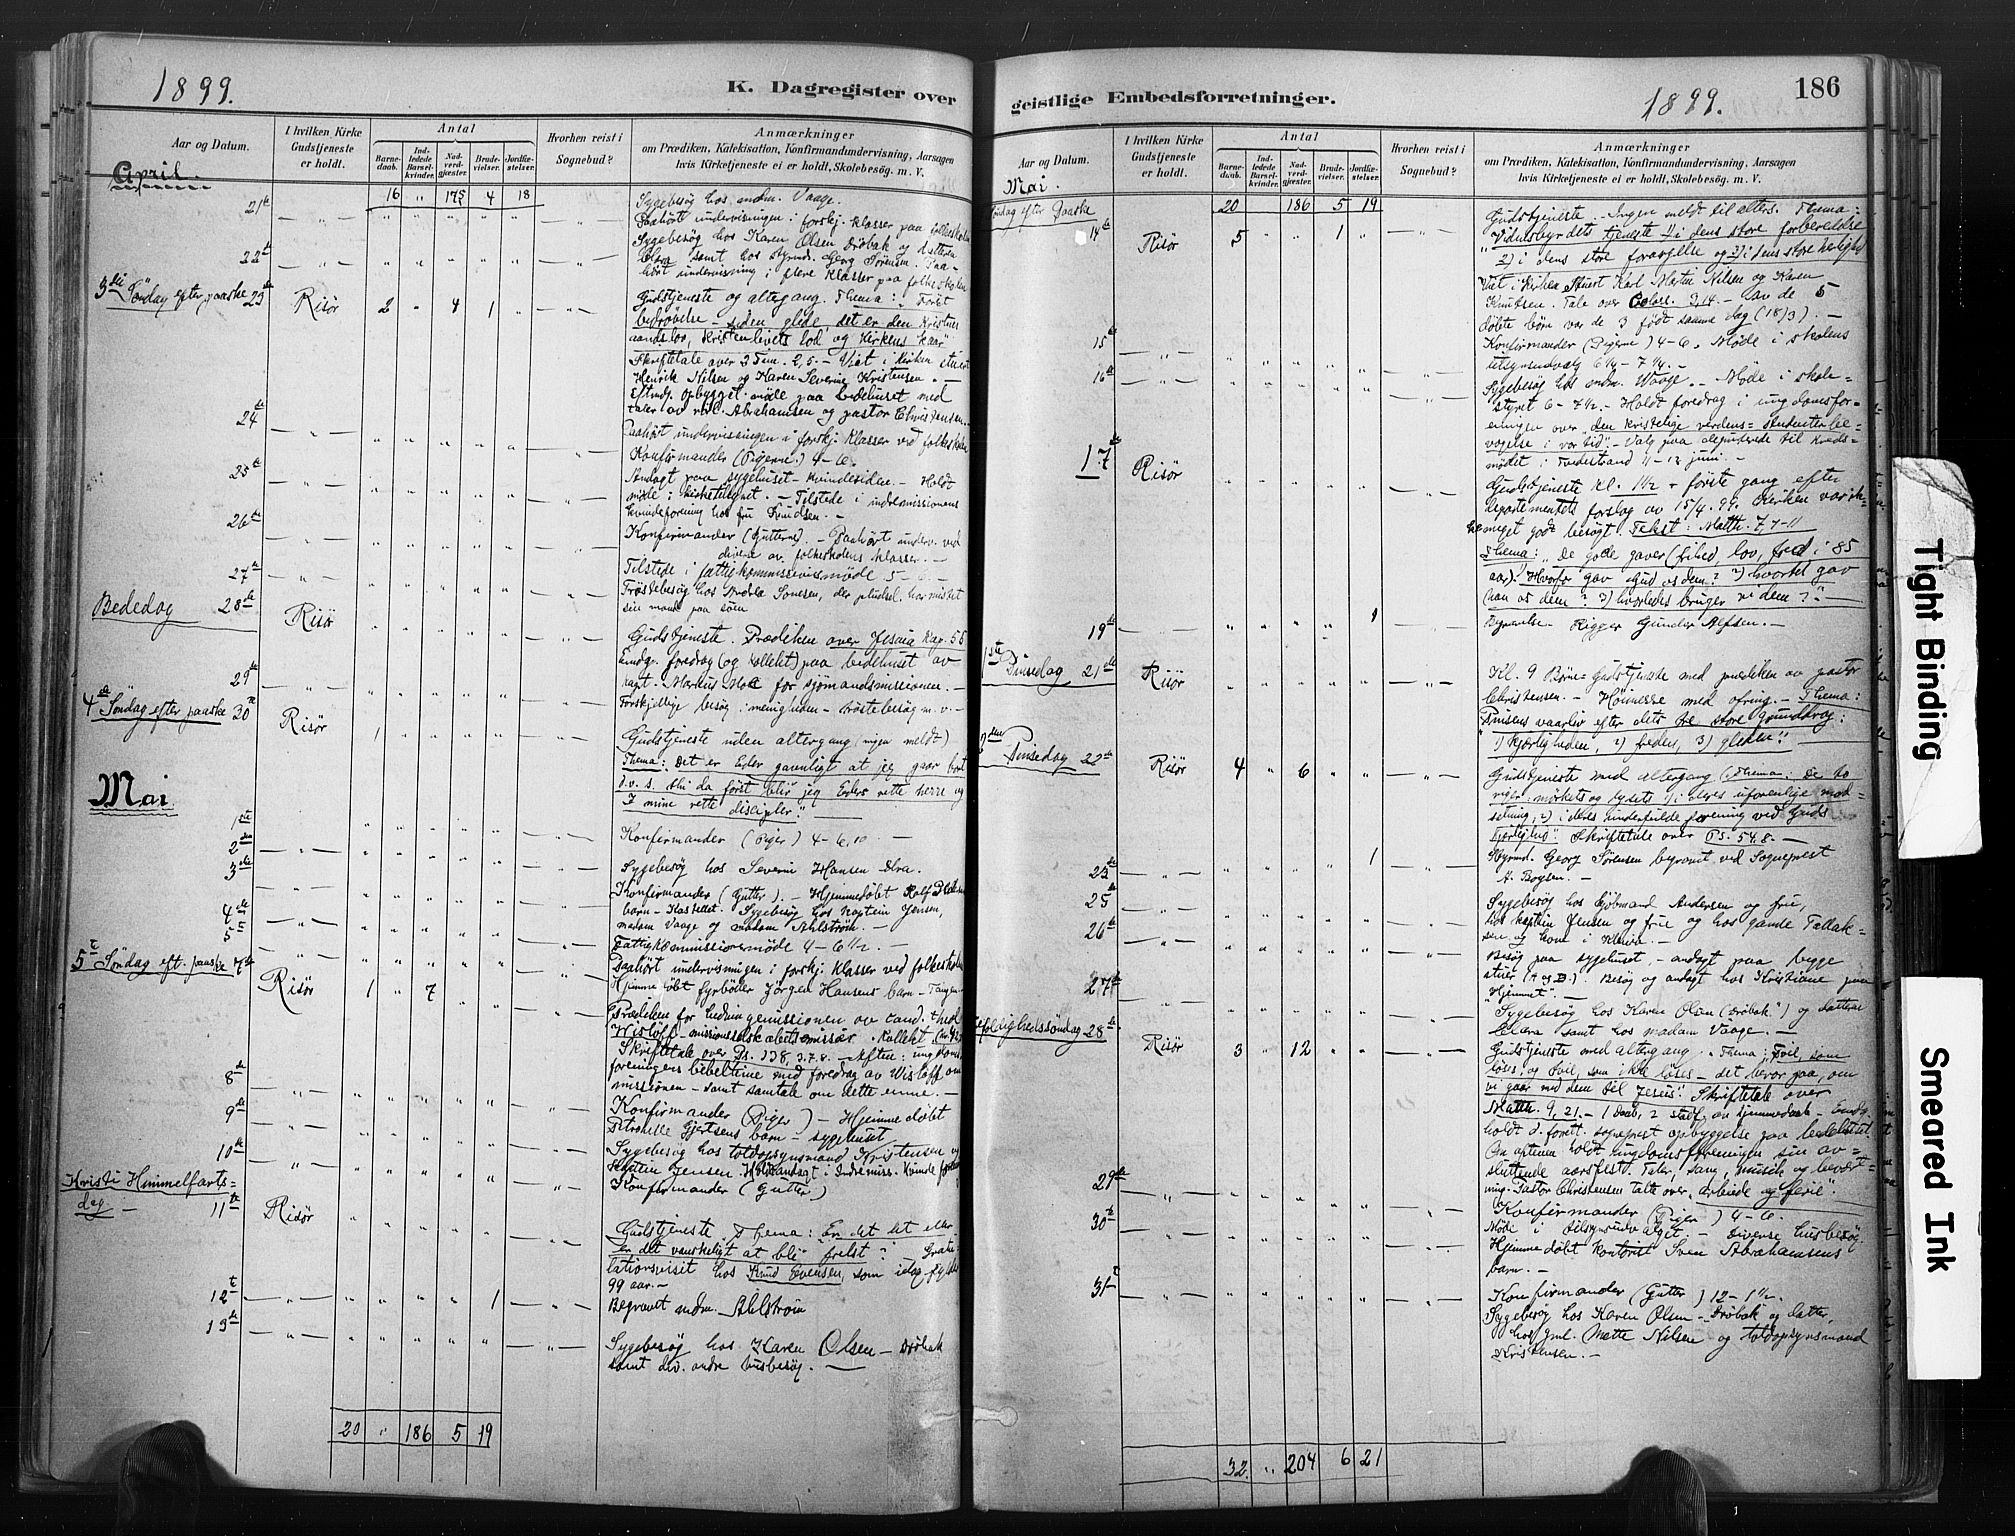 1899.
K. Dagregister over
Aar og Datum.
I hvilken Kirke Gudstjeneste er holdt.
Antal
Barnedaab.
Indledede Barselkvinder.
Nadverdgjæster.
Brudevielser.
Jordfæstelser.
Hvorhen reist i Sognebud?
Anmærkninger
om Prædiken, Katekisation, Konfirmandundervisning, Aarsagen
hvis Kirketjeneste ei er holdt, Skolebesøg. m. V.
April.
16 " 175 4 18
21de Sygebesøg hos mdm. Vaage.
Paahørt undervisningen i forskj. klasser paa folkeskolen
22de Sygebesøg hos Karen Olsen Drøbak og datteren
Clara samt hos styrmd. Georg Sørensen. Paa-
hørt undervisning i flere klasser paa folkeskolen
3die Søndag efter paaske 23de Risør 2 " 4 1 "
Gudstjeneste og altergang. Thema: "Først
bedrøvelse – siden glæde, det er den kristnes
aandslov, kristenlivets lod og kirkens kaar"
Skriftetale over 2 Tim. 2,5. – Viet i kirken stuert
Henrik Nilsen og Karen Severine Kristensen. –
opbygget. møde paa bedehuset med
taler av Abrahamsen og pastor Christensen.
24de Paahørt undervisningen i forskj. klasser ved folkeskolen
Konfirmander (Pigerne) 4–6.
25de Andagt paa sygehuset – kvindesiden. – Holdt
møde i kirketilsynet. – Tilstede i indremissionens
kvindeforening hos fru Knudsen. –
26de Konfirmander (Gutterne). – Paahørt underv. ved
diverse av folkeskolens klasser. –
27de Tilstede i fattigkommissionsmøde 5–6. –
Trøstebesøg hos, der pludsel. har mistet
sin mand paa søen
Bededag 28de Risør
Gudstjeneste. Prædiken over Jesaia kap. 55
foredrag (og kollekt) paa bedehuset av
Markus for sjømandsmissionen. –
29de Forskjellige besøg i menigheden – trøstebesøg m. v. –
4de Søndag efter paaske 30te Risør 1
Gudstjeneste uden altergang (ingen meldt)
Thema: Det er Eder gavnligt at jeg gaar bort
d.v.s. thi da først blir jeg Eders rette herre og
I mine rette disciple". –
Mai
1ste Konfirmander (Piger) 4–6.
2den Sygebesøg hos Severin Hansen
3die Konfirmander (Gutter). – Hjemmedøbt Rolf
barn – Kastellet. Sygebesøg hos kaptein Jensen,
madam Vaage og madam Ahlstrøm. –
4de Fattigkommissionsmøde 4–6½. –
5te Paahørt undervisningen i forskj. klasser ved folkeskolen
Hjemmedøbt fyrbøder Jørgen Hansens barn – Tangen
5te Søndag eft. paaske 7de Risør 1 " 7
Prædiken for hedningemissionen av cand. theol.
Wisløff – missionsselskabets emissær. Kollekt
Skriftetale over Ps. 138, 3.7.8. – Aften: ungdoms-
foreningens bibeltime med foredrag av Wisløff om
missionen – samt samtale om dette emne. –
8de Konfirmander (Piger) – Hjemmedøbt
Petronelle Gjertsens barn – sygehuset
9de Sygebesøg hos toldopsynsmand Kristensen og
kaptein Jensen. Holdt andagt i Indremiss. kvindeforening
10de Konfirmander (Gutter)
Kristi Himmelfarts-
dag – 11te Risør
Gudstjeneste Thema: Er det let eller
er det vanskeligt at bli frelst" – Gratu-
lationsvisit hos Knud Evensen, som idag fylder
99 aar. –
12te 1 Begravet mdm. Ahlstrøm
13de Sygebesøg hos Karen Olsen – Drøbak
samt div. andre husbesøg. –
20 " 186 5 19
geistlige Embedsforretninger.
1899.
186
Aar og Datum.
I hvilken Kirke Gudstjeneste er holdt.
Antal
Barnedaab.
Indledede Barselkvinder.
Nadverdgjæster.
Brudevielser.
Jordfæstelser.
Hvorhen reist i Sognebud?
Anmærkninger
om Prædiken, Katekisation, Konfirmandundervisning, Aarsagen
hvis Kirketjeneste ei er holdt, Skolebesøg. m. V.
Mai.
20 " 186 5 19
Søndag efter Paaske 14de Risør 5 " " 1 "
Gudstjeneste. Ingen meldt til alters. Thema:
"Vidnesbyrdets tjeneste 1) i dens store forberedelse
2) i dens store forargelse og 3) i dens store herlighed
Viet i kirken Stuert Karl Martin Nilsen og Karen
Knutsen. Tale over Coloss. 3,14. – av de 5
døbte børn var de 3 født samme dag (18/3). –
15de Konfirmander (Pigerne) 4–6. Møde i skolens
tilsynsudvalg 6¼–7¼. –
16de Sygebesøg hos mdm. Vaage. – Møde i skole-
styret 6–7½. – Holdt foredrag i ungdomsfor-
eningen over "den kristelige verdens-studenterbe-
vægelse i vor tid". – Valg paa deputerede til kreds-
mødet i Tvedestrand 11–12 juni. –
17de Risør
Gudstjeneste kl. 11½ – første gang efter
departementets forslag av 15/4.99. Kirken var ik-
ke meget godt besøgt. Tekst: Matth. 7,7–11
Thema: "De gode gaver (frihed, lov, fred i 85
aar)! Hvorfor gav Gud os dem? 2) hvortil gav
han os dem? 3) hvorledes bruger vi dem?". –
19de 1 Begravelse – Rigger Gunder Alfsen. –
1ste Pinsedag 21de Risør
Kl. 9 Børne-Gudstjeneste med prædiken av pastor
Christensen. – Høimesse med ofring. – Thema:
"Pinsens vaarliv efter dets tre store grunddrag:
1) kjærligheden, 2) freden, 3) glæden". –
2den Pinsedag 22de Risør 4 " 6 " "
Gudstjeneste med altergang (Thema: De to
riger: mørkets og lysets 1) i deres uforenlige mod-
sætning, 2) i deres underfulde forening ved Guds
kjærlighed". Skriftetale over Ps. 54,8. –
23de 1 Styrmd. Georg Sørensen begravet ved Sogneprest
H. Boysen. –
25 Sygebesøg hos kjøbmand Andersen og frue,
hos kaptein Jensen og frue og hos gamle Tallak-
sen og kone i –
26de Besøg paa sygehuset – andagt paa begge
stuer (A og B.). Besøg og andagt hos Kristiane paa
"Hjemmet". –
27de Sygebesøg hos Karen Olsen (Drøbak") og datteren
Clara samt hos madam Vaage. –
Trefoldighedssøndag 28de Risør 3 " 12
Gudstjeneste med altergang. Thema: Tvil, som
løses og tvil, som ikke løses – det beror paa, om
vi gaar med dem til Jesus". Skriftetale over
Matth. 9,21. – 1 daab, 2 stadf. av hjemmedaab –
holdt opbyggelse paa bedehuset.
Om aftenen holdt ungdomsforeningen sin av-
sluttende aarsfest. Taler, sang, musik og bevært-
ning. Pastor Christensen talte over "arbeide og ferie".
29de Konfirmander (Piger) 4–6.
30te Møde i tilsynsudvalget – Diverse husbesøg.
Hjemmedøbt kontorist Sven Abrahamsens
barn. –
31te Konfirmander (Gutter) 12–1½.
Sygebesøg hos Karen Olsen – Drøbak og datter,
hos gml. Mette Nilsen og toldopsynsmand
Kristensen. –
32 " 204 6 21
Tight Binding
Smeared Ink